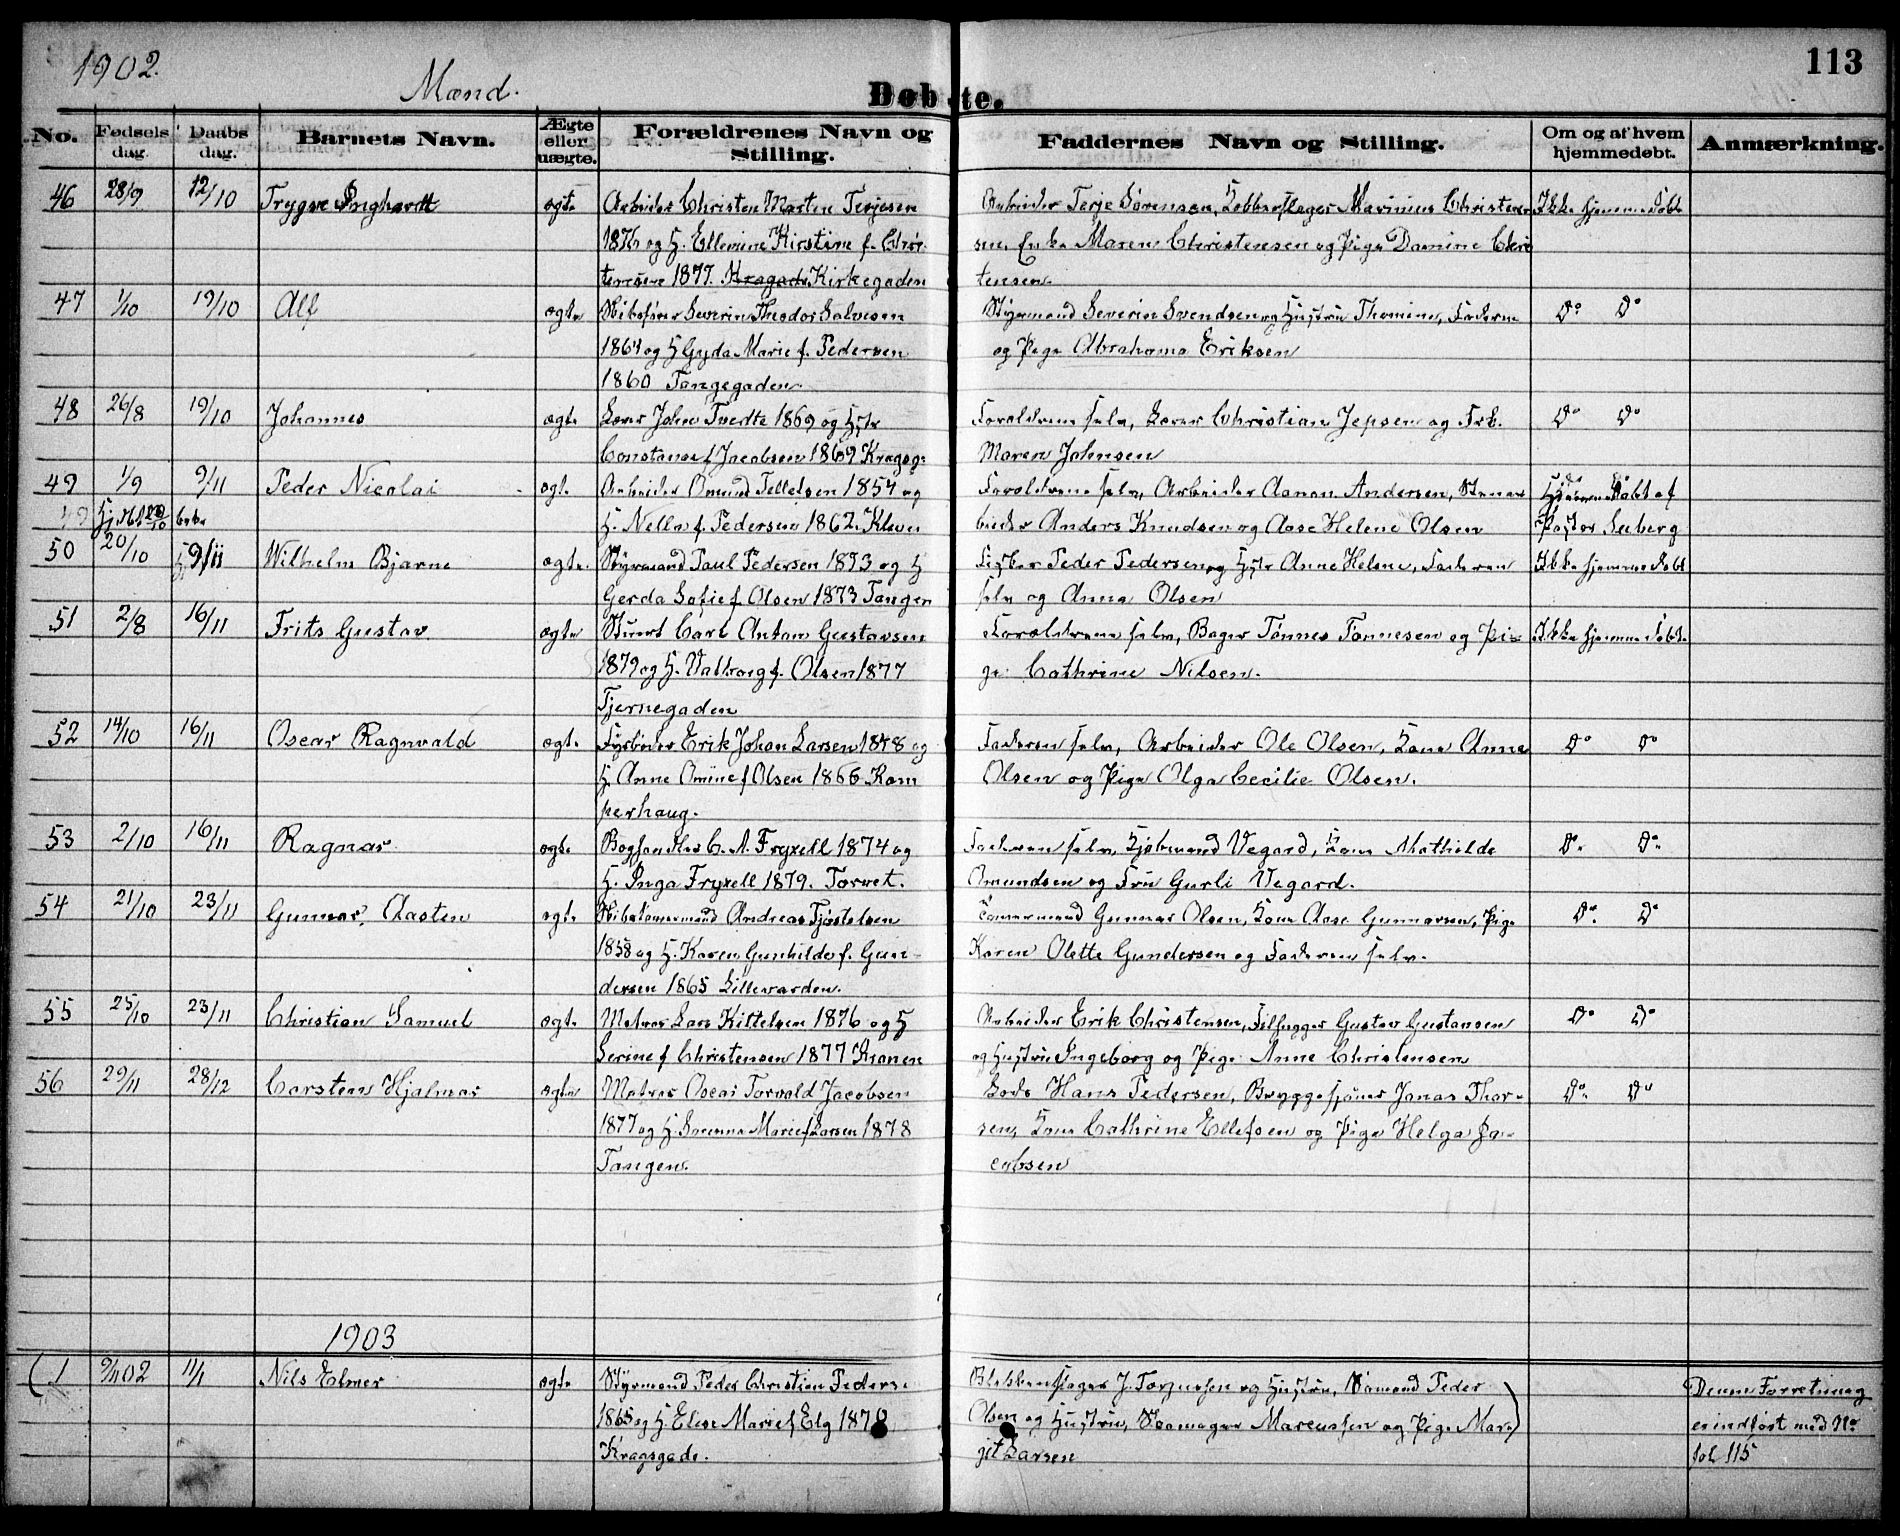 1902.
Mænd.
Døbte.
113
No.
Fødsels dag.
Daabs dag.
Barnets Navn.
Ægte eller uægte.
Forældrenes Navn og Stilling.
Faddernes Navn og Stilling.
Om og af hvem hjemmedøbt.
Anmærkning.
46 28/9 12/10 Trygve Inghardt ægte Arbeider Christen Morten Terjesen Arbeider Terje Sørensen, Kobberslager Marinius Christen Ikke hjemmedøbt
1876 og H. Ellevine Kirstine f. Chris- sen, Enke Maren Christensen og Pige Damine Chris
tensen 1877. Kragads Kirkegaden tensen.
47 1/10 19/10 Alf ægte Skibsfører Severin Theodor Salvesen Styrmand Severin Svendsen og Hustru Thomine, Faderen Do Do
1864 og H Gyda Marie f. Pedersen og Pige Abrahama Eriksen
1860 Tangegaden
48 26/8 19/10 Johannes ægte Lærer John Tvedte 1869 og Hstr Forældrene selv, Lærer Christian Jepsen og Frk. Do Do
Constanse f Jacobsen 1869 Kragsg: Maren Johnsen
49 1/9 9/11 Peder Nicolai ægt. Arbeider Omund Tellefsen 1854 og Forældrene selv, Arbeider Aanon Andersen, Stenar Hjemmedøbt af
H. Nella f. Pedersen 1862. Kleven beider Anders Knudsen og Aase Helene Olsen Pastor Seeberg
50 20/10 9/11 Wilhelm Bjarne ægte. Styrmand Paul Pedersen 1873 og H Fisker Peder Pedersen og Hstr Anne Helene, Faderen Ikke hjemmedøbt
Gerda Sofie f Olsen 1873 Tangen selv og Anna Olsen
51 2/8 16/11 Frits Gustav ægte Stuert Carl Anton Gustavsen Forældrene selv, Bager Tönnes Tönnesen og Pi- Ikke hjemmedøbt
1879 og H. Valborg f. Olsen 1877 ge Cathrine Nilsen.
Tjernegaden
52 14/10 16/11 Oscar Ragnvald ægte Fyrbøder Erik Johan Larsen 1878 og Faderen selv, Arbeider Ole Olsen, Kone Anne Do Do
H. Anne Omine f Olsen 1866 Kam Olsen og Pige Olga Cecilie Olsen.
perhaug.
53 2/10 16/11 Ragnar ægte Boghandler C. A. Fryxell 1874 og Faderen selv, Kjøbmand Vegard, Kone Mathilde Do Do
H. Inga Fryxell 1879. Torvet. Omundsen og Fru Gurli Vegard.
54 21/10 23/11 Gunnar Aasten ægte Skibstømmermand Andreas Tjøstolsen Tømmermand Gunnar Olsen, Kone Aase Gunnarsen, Pige Do Do
1858 og H. Karen Gunhilde f. Gun- Karen Olette Gundersen og Faderen selv.
dersen 1865 Lillevarden.
55 25/10 23/11 Christian Samuel ægte Matros Lars Kittelsen 1876 og H Arbeider Erik Christensen, Filhugger Gustav Gustavsen Do Do
Serine f Christensen 1877 Kranen og Hustru Ingeborg og Pige Anne Christensen
56 29/11 28/12 Carsten Hjalmar ægte Matros Oscar Torvald Jacobsen Lods Hans Pedersen, Bryggesjauer Jonas Thor- Do Do
1877 og H. Marie f Larsen 1878 sen, Kone Cathrine Ellefsen og Pige Helga Ja-
Tangen. cobsen
1903
(1 9/11 02 11/1 Nils Elmer ægte Styrmand Peder Christian Peders. Blikkenslager J. Torjussen og Hustru, Sømand Peder Denne Forretning
1865 og H. Elise Marie f Elg 1870 Olsen og Hustru, Skomager Marcussen og Pige Mar) er indført med No
Kragsgade. git Larsen fol 115